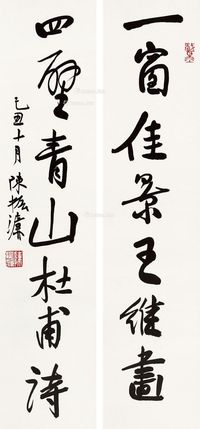 一窗佳景王維畫
四壁青山杜甫詩
己丑十月陳振濂